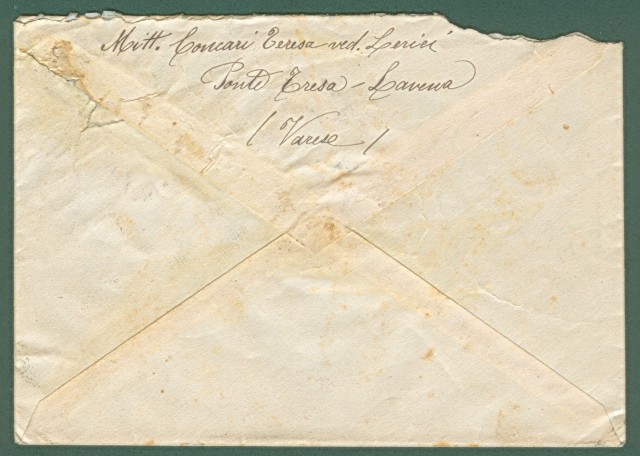 Mitt. Concari Teresa ved. Lerici
Ponte Tresa - Lavena
(Varese)